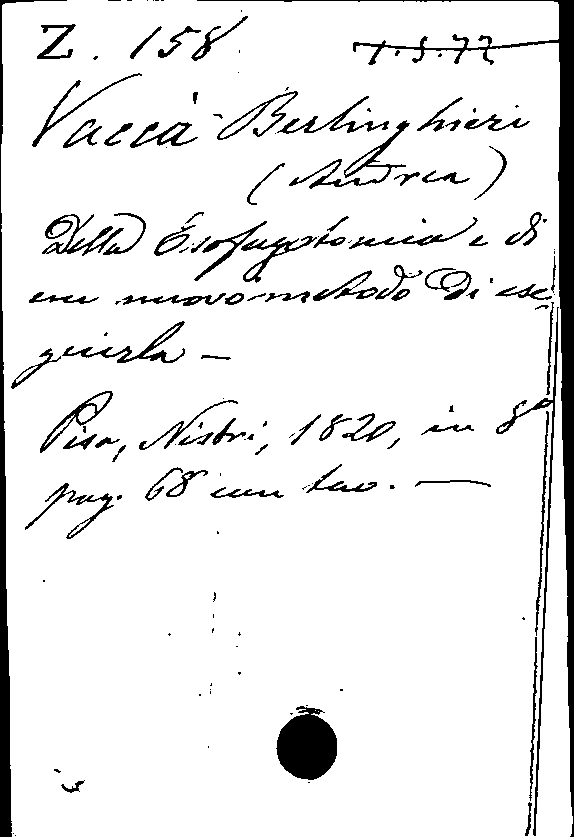 Z. 158 1.5.72
Vaccà Berlinghieri
(Andrea)
Della Esofagotomia e di
un nuovo metodo di ese-
guirla —
Pisa, Nistri, 1820, in 8°
pag. 68 con tav. —